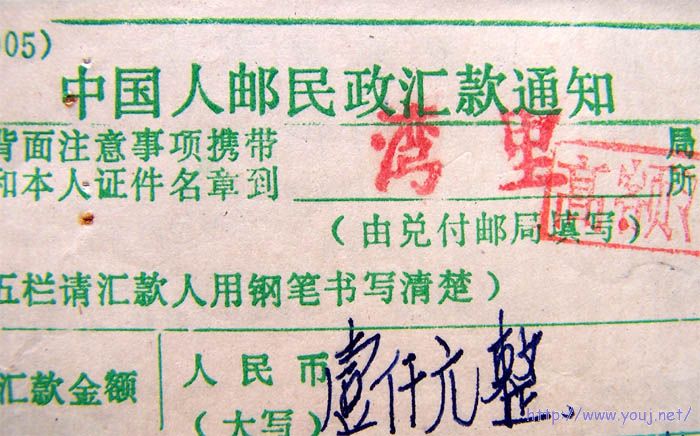 005)
中国人邮民政汇款通知
背面注意事项携带
和本人证件名章到
湾里
局
所
高颖
(由兑付邮局填写)
五栏请汇款人用钢笔书写清楚)
汇款金额
人民币
(大写)
壹仟元整
http://www.youj.net/